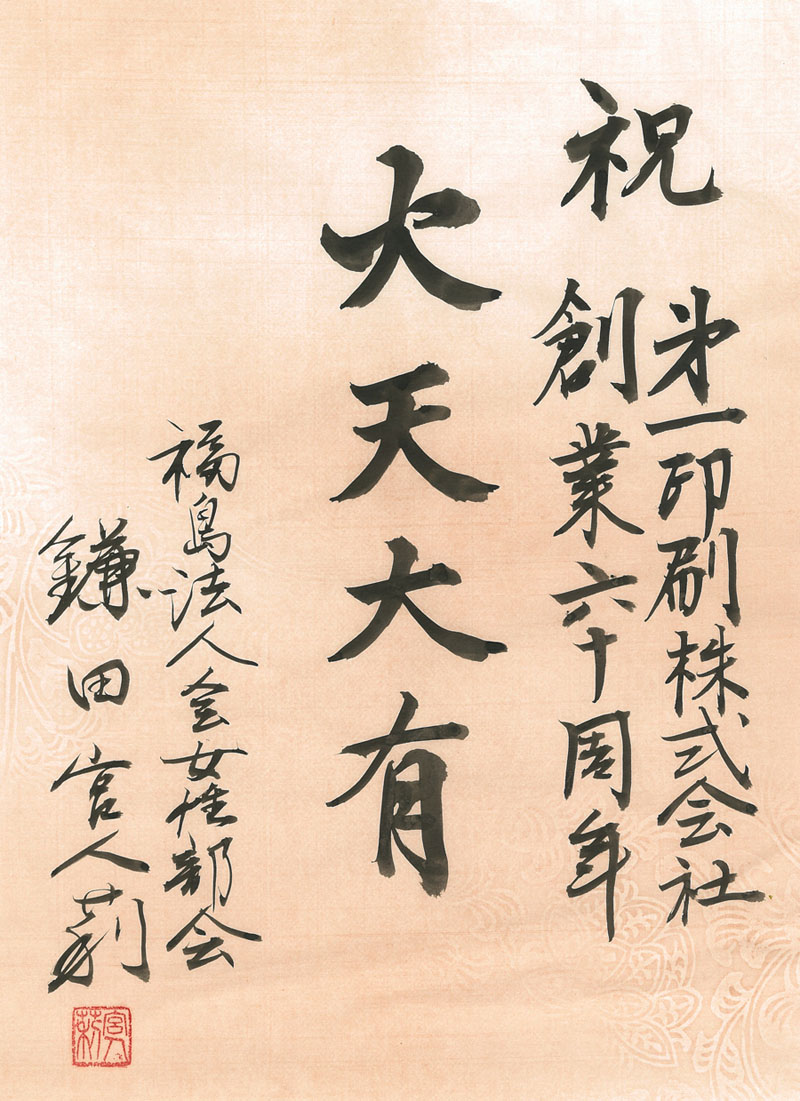 祝
第一印刷株式会社
創業六十周年
火天大有
福島法人会女性部会
鎌田宮人莉
宮人莉